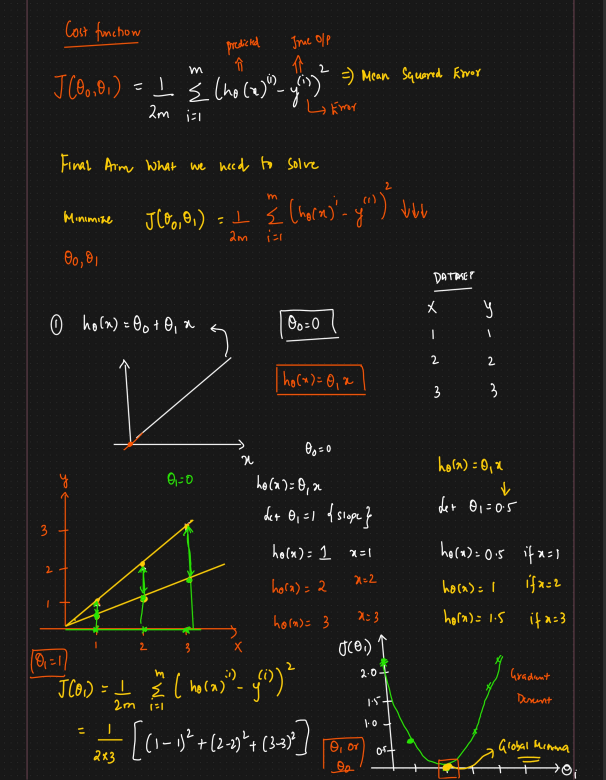 Cost function
predicted True O/P
J(θ₀,θ₁) = 1/2m Σ i=1 m (hθ(x)⁽ⁱ⁾ - y⁽ⁱ⁾)² => Mean Squared Error
Error
Final Aim What we need to solve
Minimize J(θ₀,θ₁) = 1/2m Σ i=1 m (hθ(x)ⁱ - y⁽ⁱ⁾)² ↓↓↓
θ₀,θ₁
DATASET
X Y
1 1
2 2
3 3
① hθ(x) = θ₀ + θ₁ x
θ₀=0
hθ(x) = θ₁ x
x
y
3
2
1
1 2 3 X
θ₁=0
θ₀=0
hθ(x) = θ₁ x
let θ₁ = 1 {slope}
hθ(x) = 1 x=1
hθ(x) = 2 x=2
hθ(x) = 3 x=3
hθ(x) = θ₁ x
let θ₁ = 0.5
hθ(x) = 0.5 if x=1
hθ(x) = 1 if x=2
hθ(x) = 1.5 if x=3
θ₁=1
J(θ₁) = 1/2m Σ i=1 m (hθ(x)⁽ⁱ⁾ - y⁽ⁱ⁾)²
= 1/2×3 [(1-1)² + (2-2)² + (3-3)²]
J(θ₁)
2.0
1.5
1.0
0.5
Gradient
Descent
Global Minima
θ₁ or
θ₀
θ₁